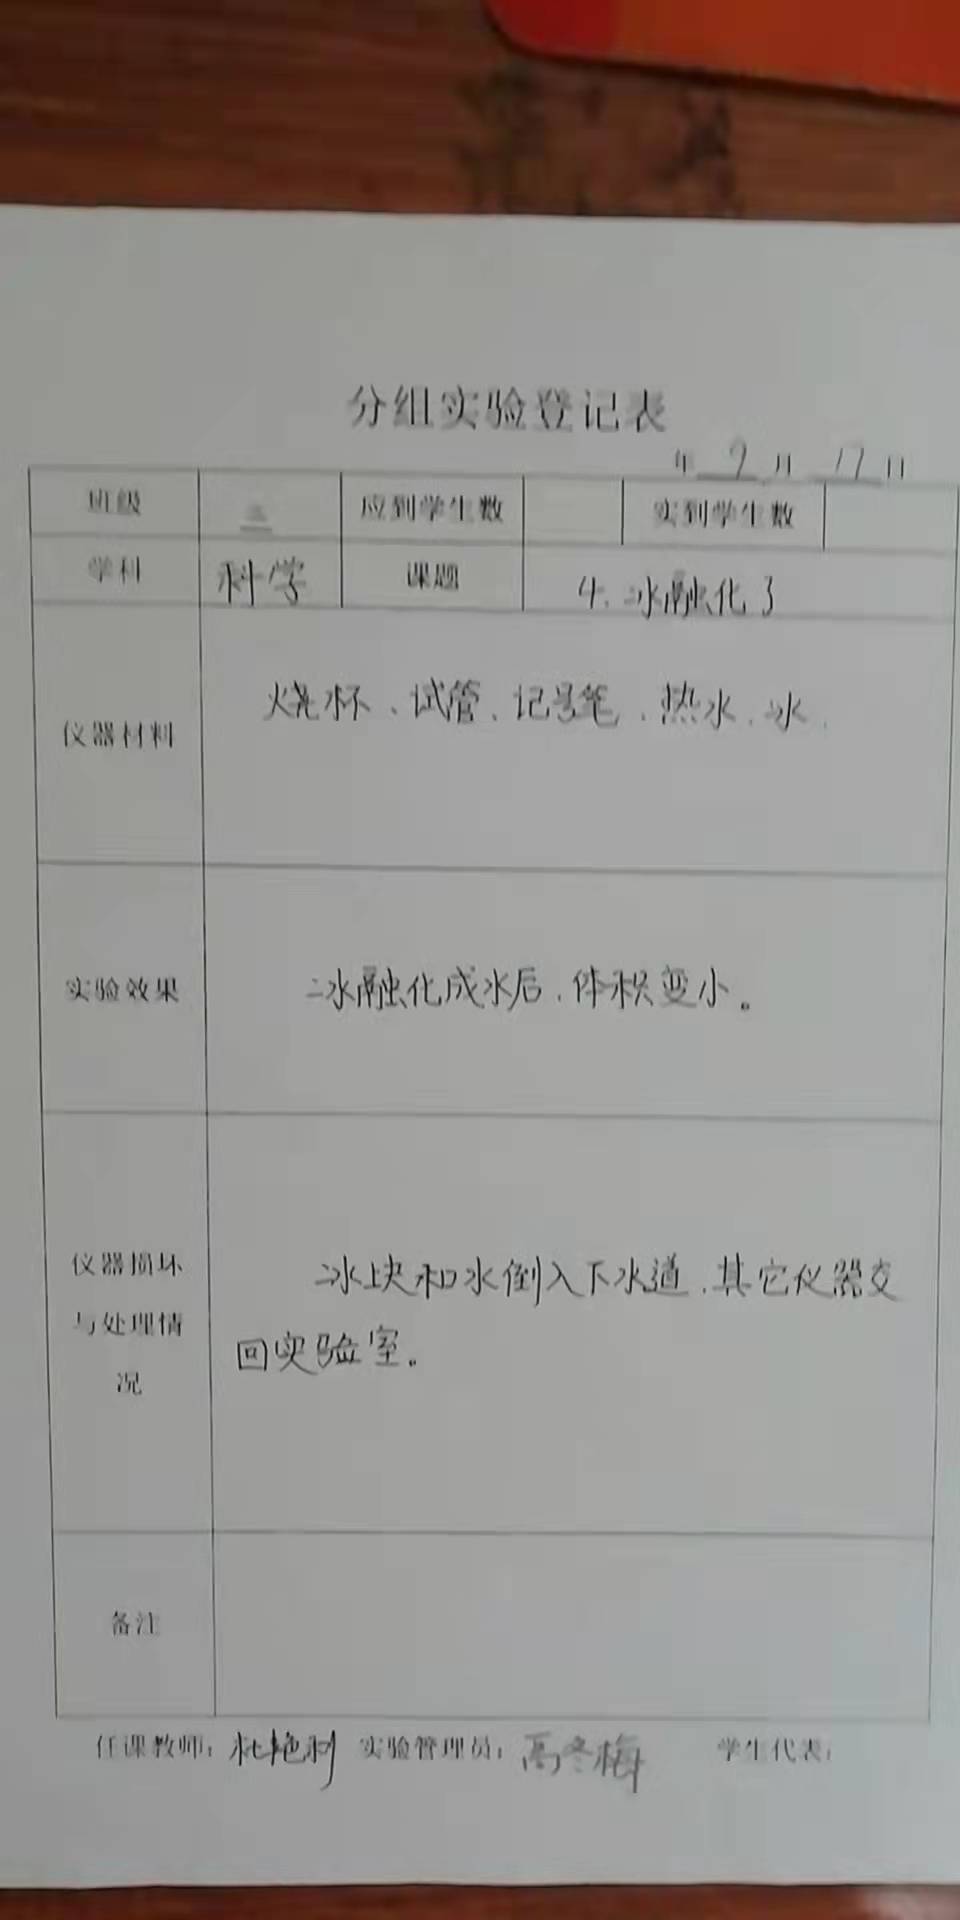 分组实验登记表
年 9 月 17 日
班级 三 应到学生数 实到学生数
学科 科学 课题 4. 冰融化了
仪器材料 烧杯、试管、记号笔、热水、冰
实验效果 冰融化成水后,体积变小。
仪器损坏 冰块和水倒入下水道,其它仪器交
与处理情 回实验室。
况
备注
任课教师: 杜艳利 实验管理员: 高冬梅 学生代表: